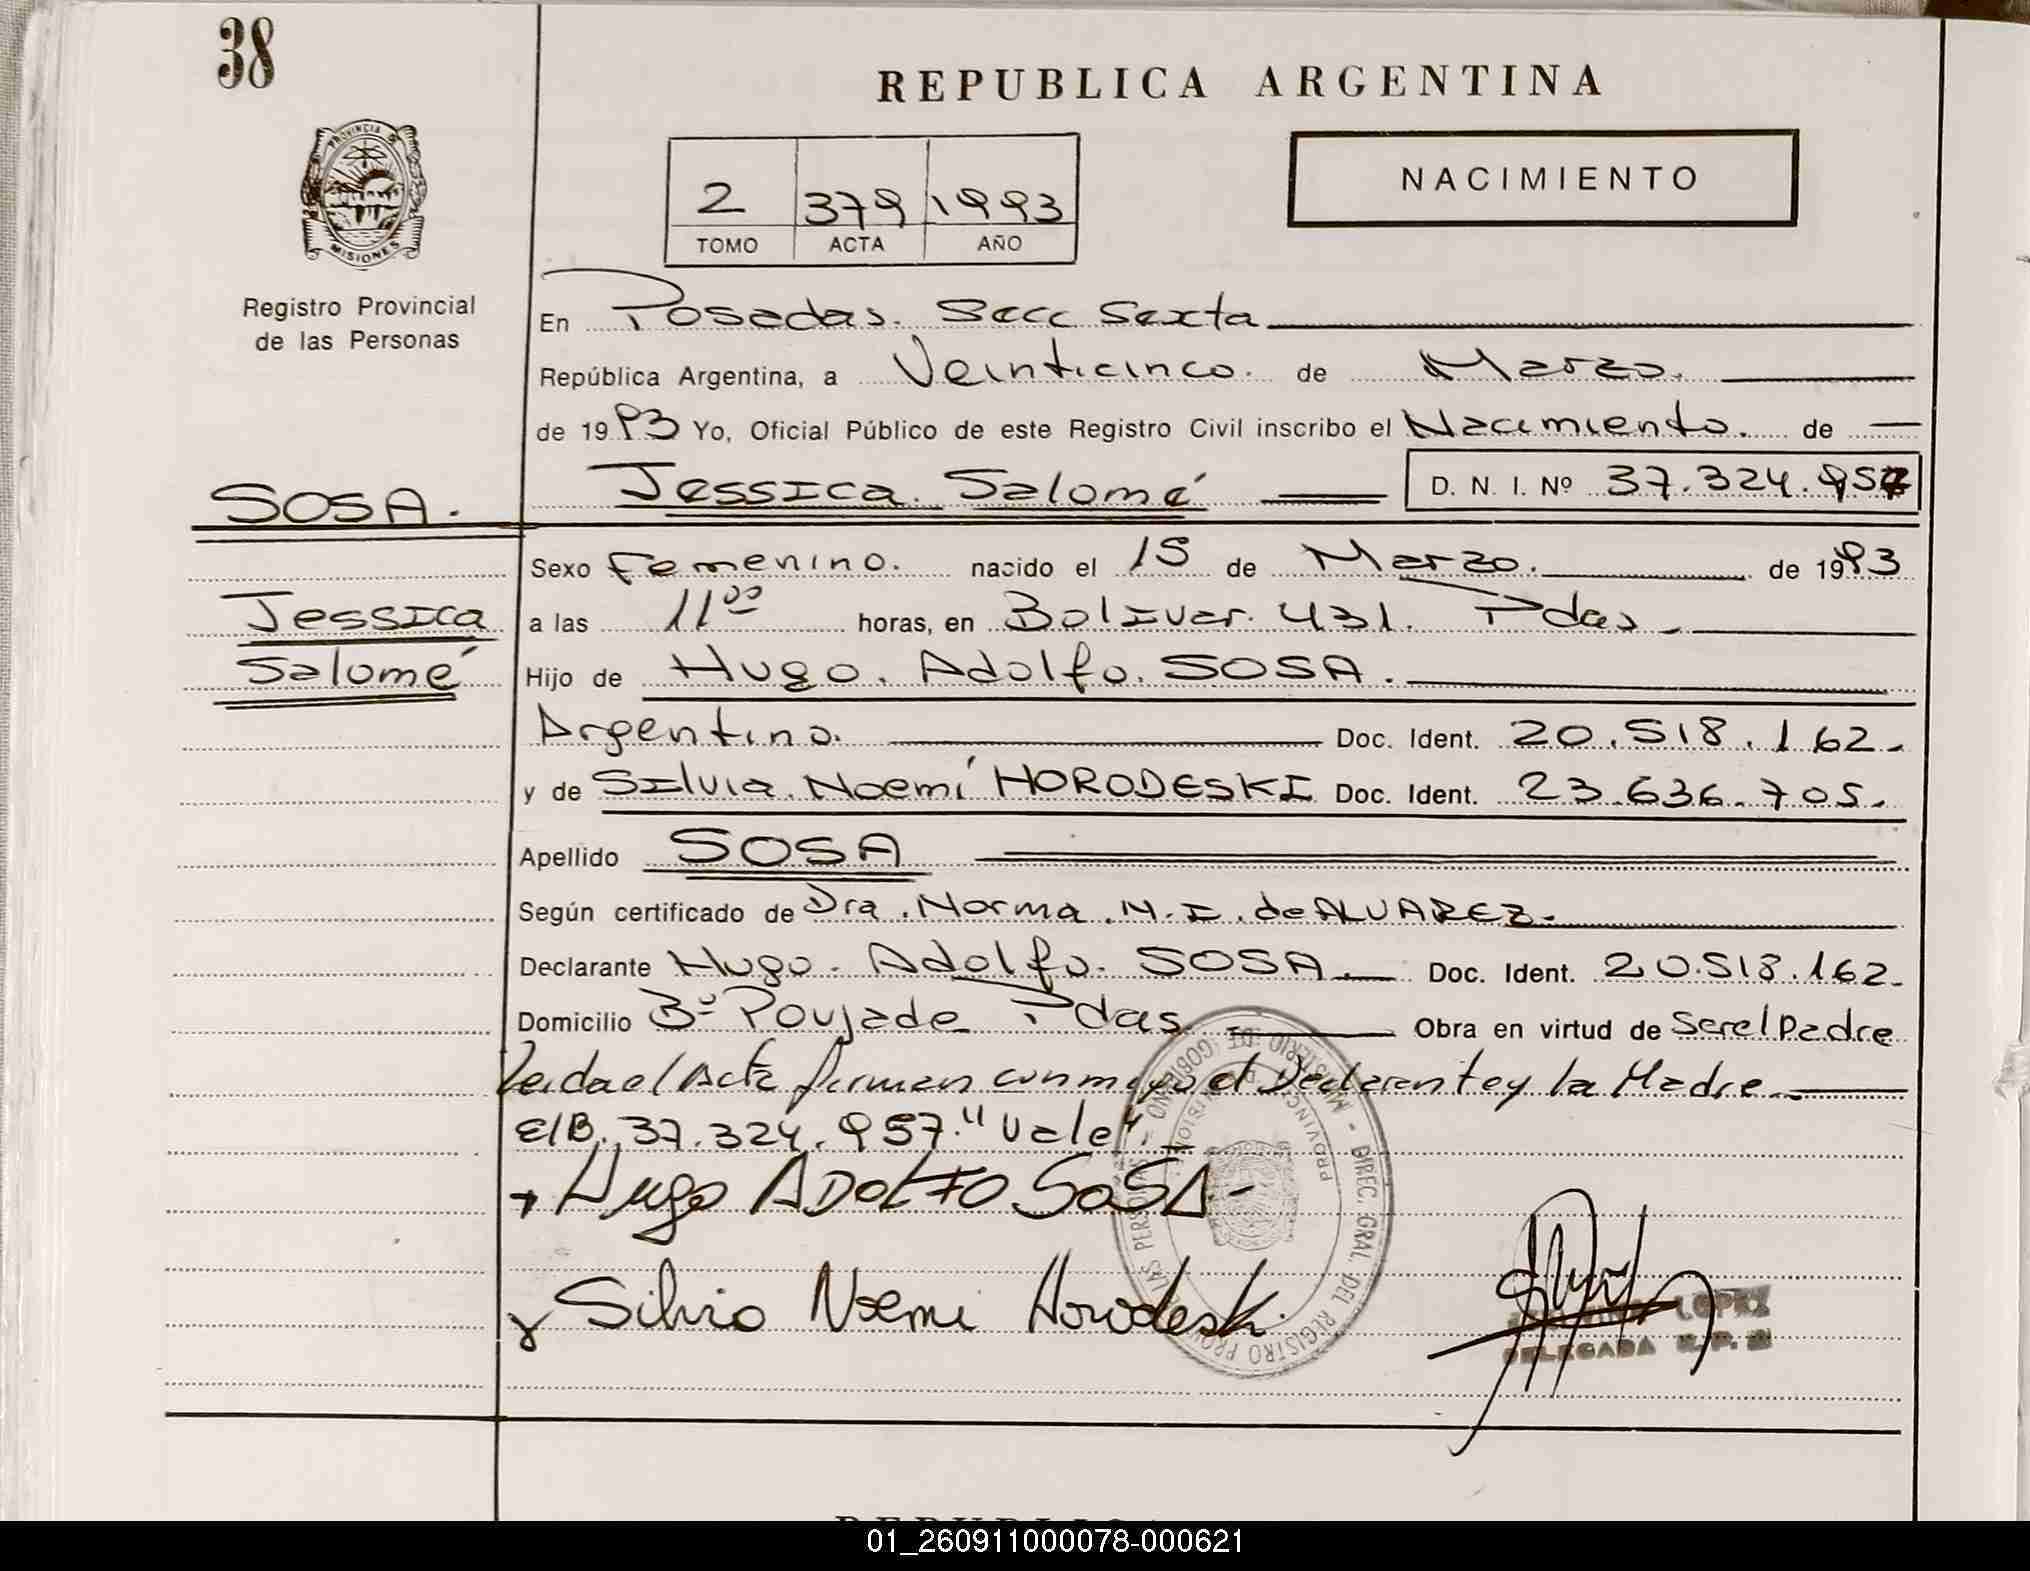 38
REPUBLICA ARGENTINA
PROVINCIA DE
MISIONES
Registro Provincial
de las Personas
2 379 1993
TOMO ACTA AÑO
NACIMIENTO
En Posadas. Secc Sexta
República Argentina, a Veinticinco. de Marzo.
de 1993 Yo, Oficial Público de este Registro Civil inscribo el Nacimiento. de
SOSA.
Jessica Salomé
Jessica. Salomé D. N. I. Nº 37.324.957
Sexo Femenino. nacido el 15 de Marzo. de 1993
a las 11⁰⁰ horas, en Bolivar. 431. Pdas.
Hijo de Hugo. Adolfo. SOSA.
Argentino. Doc. Ident. 20.518.162.
y de Silvia. Noemí HORODESKI Doc. Ident. 23.636.705.
Apellido SOSA
Según certificado de Dra. Norma. M. I. de ALVAREZ.
Declarante Hugo. Adolfo. SOSA. Doc. Ident. 20.518.162.
Domicilio Bº Poujade Pdas. Obra en virtud de Ser el Padre
Leida el Acta firman conmigo el Declarante y la Madre.
E/B. 37.324.957. "Vale".
Hugo ADOLFO SOSA-
Silvia Noemi Horodeski.
MINISTERIO DE GOBIERNO - DIREC. GRAL. DEL REGISTRO PROV. DE LAS PERSONAS
PROVINCIA DE MISIONES
LOPEZ
DELEGADA R. P. P.
01_260911000078-000621